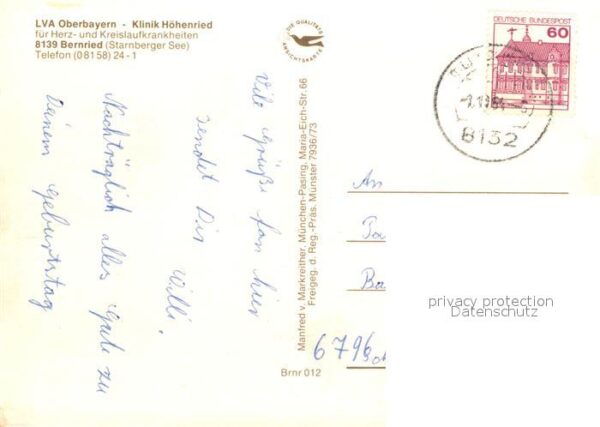 LVA Oberbayern - Klinik Höhenried
für Herz- und Kreislaufkrankheiten
8139 Bernried (Starnberger See)
Telefon (0 81 58) 24-1
DIE QUALITÄTS
ANSICHTSKARTE
Vile Grüße fon hier
sendet Dir
Willi.
Nachträglich alles gute zu
Deinem Geburtstag
Manfred v. Markreither, München-Pasing, Maria-Eich-Str. 66
Freigeg. d. Reg.-Präs. Münster 7936/73
Brnr 012
DEUTSCHE BUNDESPOST
60
8132
An
6796
privacy protection
Datenschutz